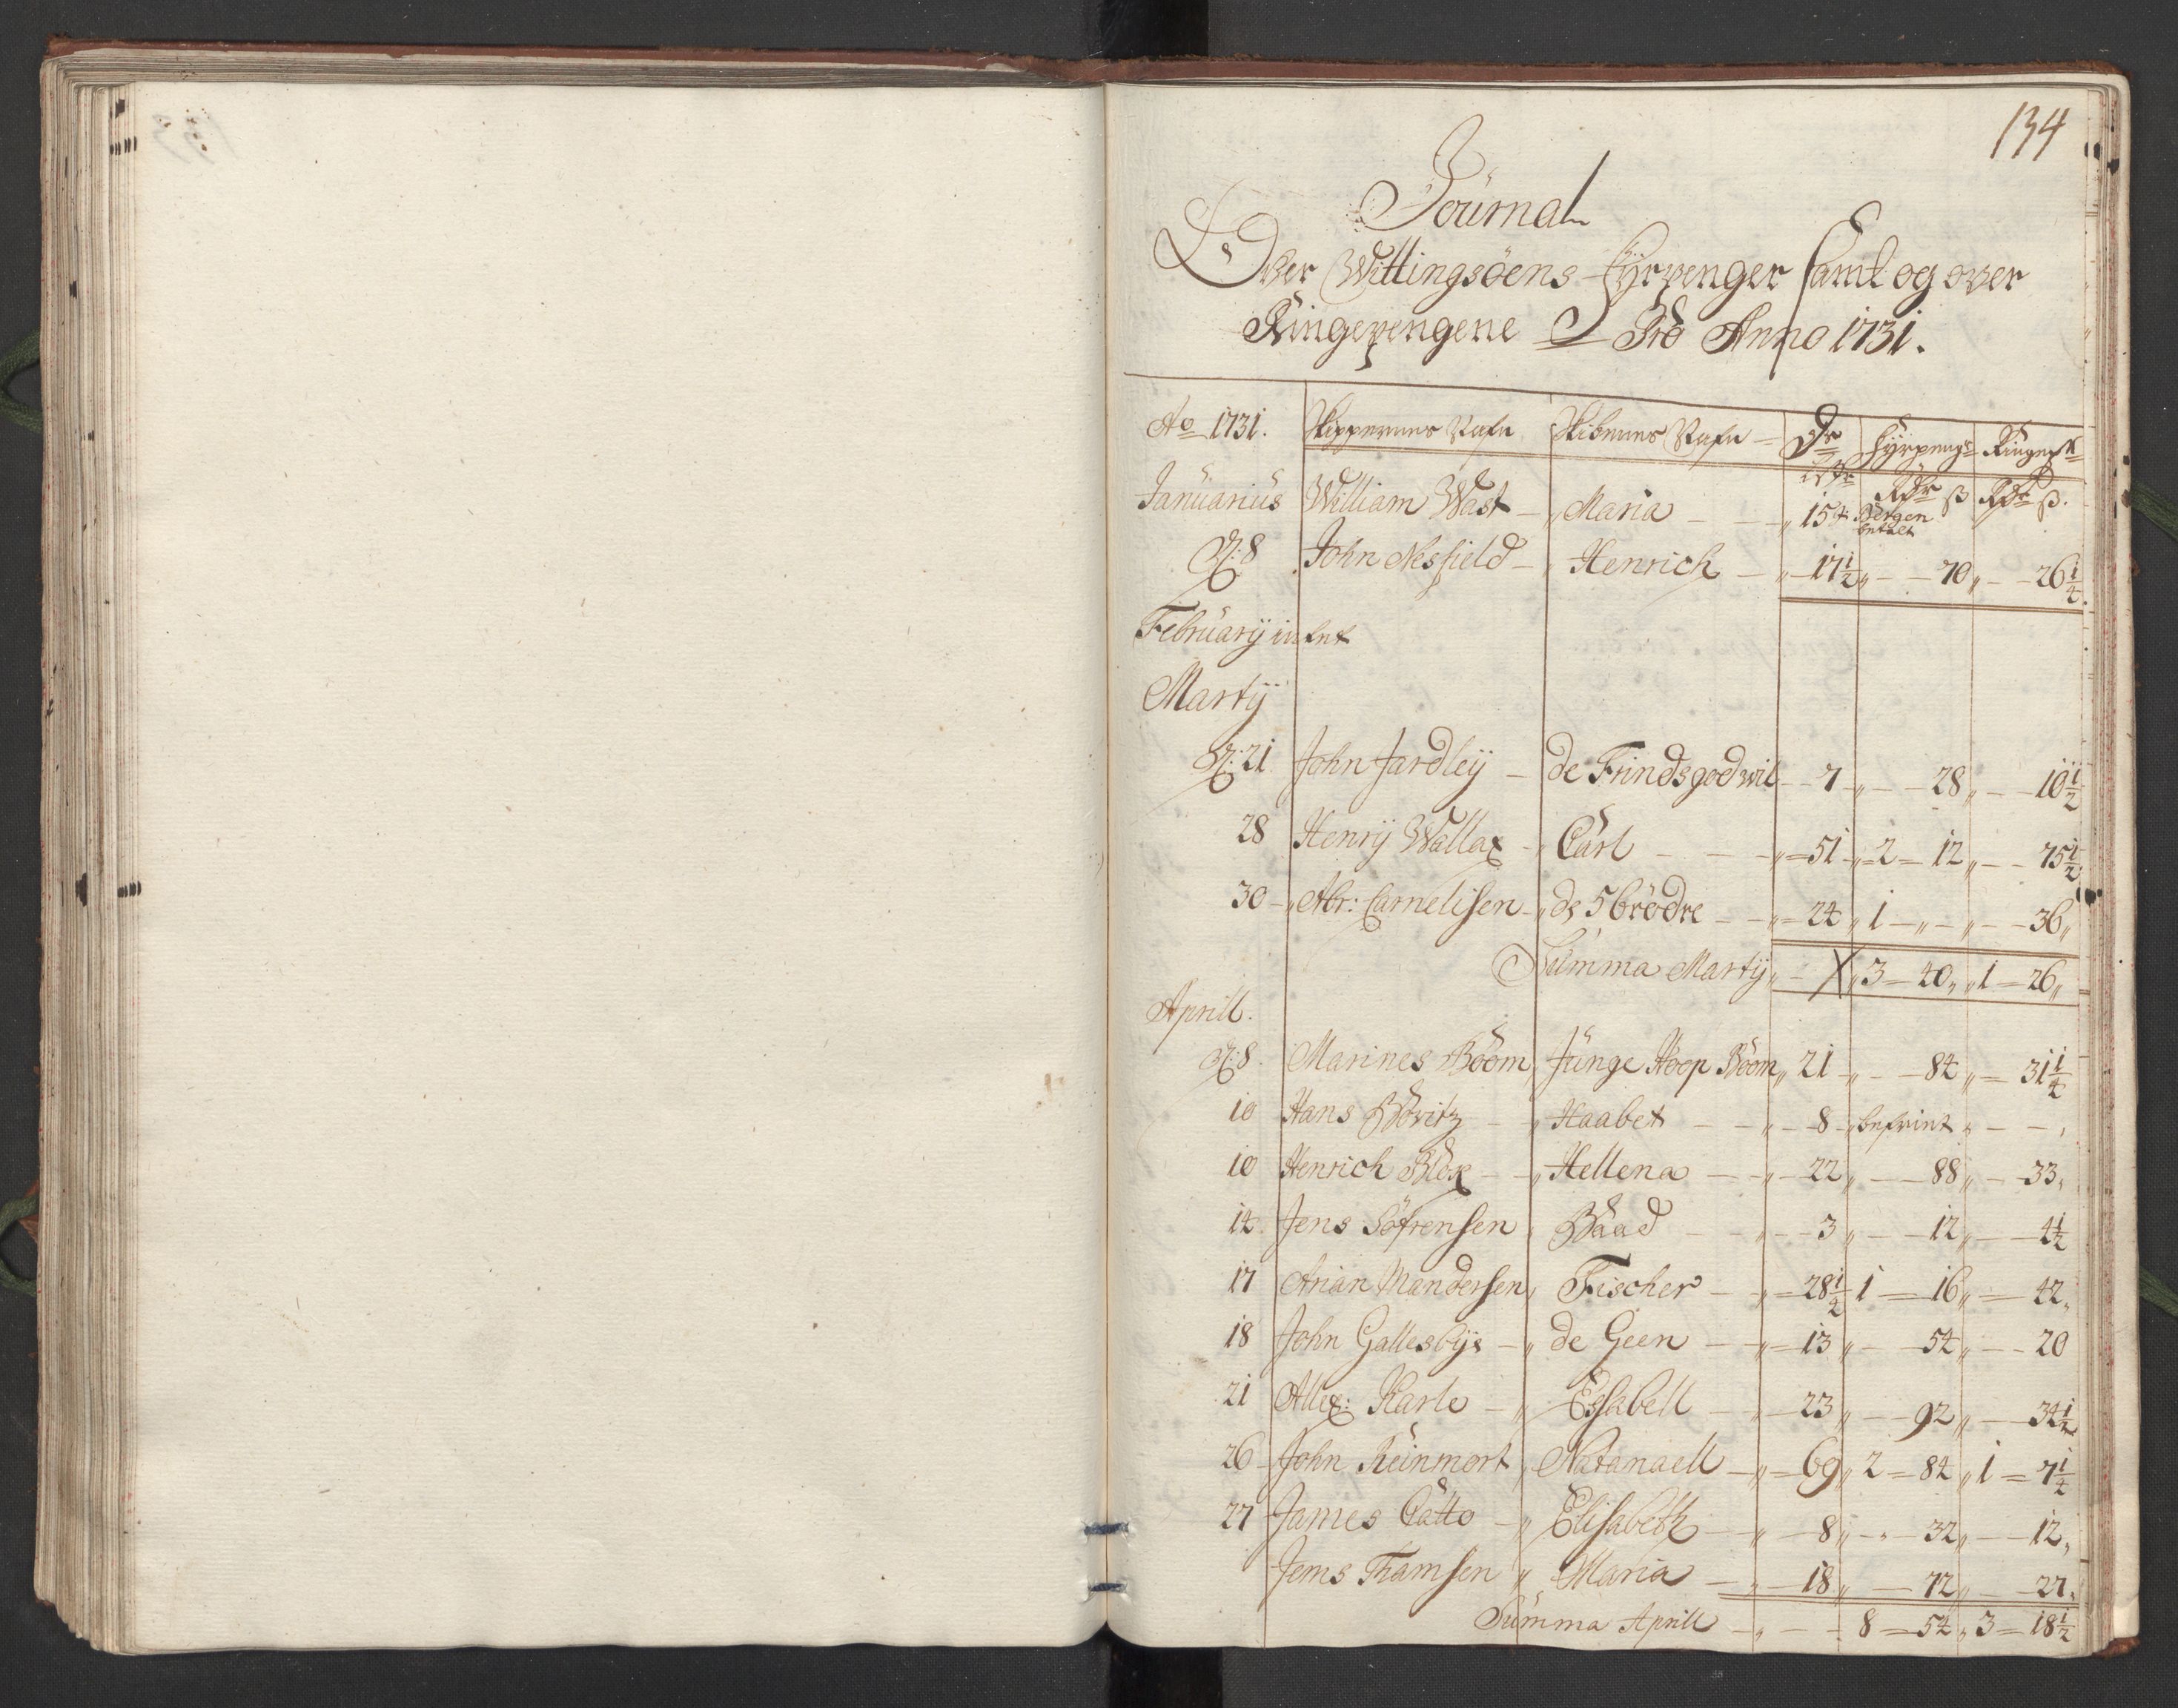 134
Journal
Over Wittingsöens fyrpenger samt og over
Ringepengene Pro Anno 1731.
Ao 1731. Skippernes Nafn Skibenes Nafn Dr Fyrpeng Ringep
Lestr Rdr ß Rdr ß.
Januarius William Wast Maria 154 Bergen betalt
d: 8 John Nesfield Henrich 17½ 70 26¼
February intet
Martÿ
d: 21 John Jardleÿ de Frindsgodwil 7 28 10½
28 Henrÿ Wallax Carl 51 2 12 75½
30 Abr: Carnelisen de 5 brödre 24 1 36
Summa Martÿ 3 40 1 26
Aprill.
d: 8 Marines Boom Junge Hoop Boom 21 84 31¼
10 Hans Boritz Haabet 8 befriet
10 Henrich Blox Hellena 22 88 33
14 Jens Söfrensen Baad 3 12 4½
17 Arian Mandersen Fischer 28½ 1 16 42
18 John Gallesbye de Geen 13 54 20
21 Allex: Karle Essabell 23 92 34½
26 John Reinmort Natanaell 69 2 84 1 7¼
27 James Catto Elisabeth 8 32 12
Jems Thamsen Maria 18 72 27
Summa Aprill 8 54 3 18½